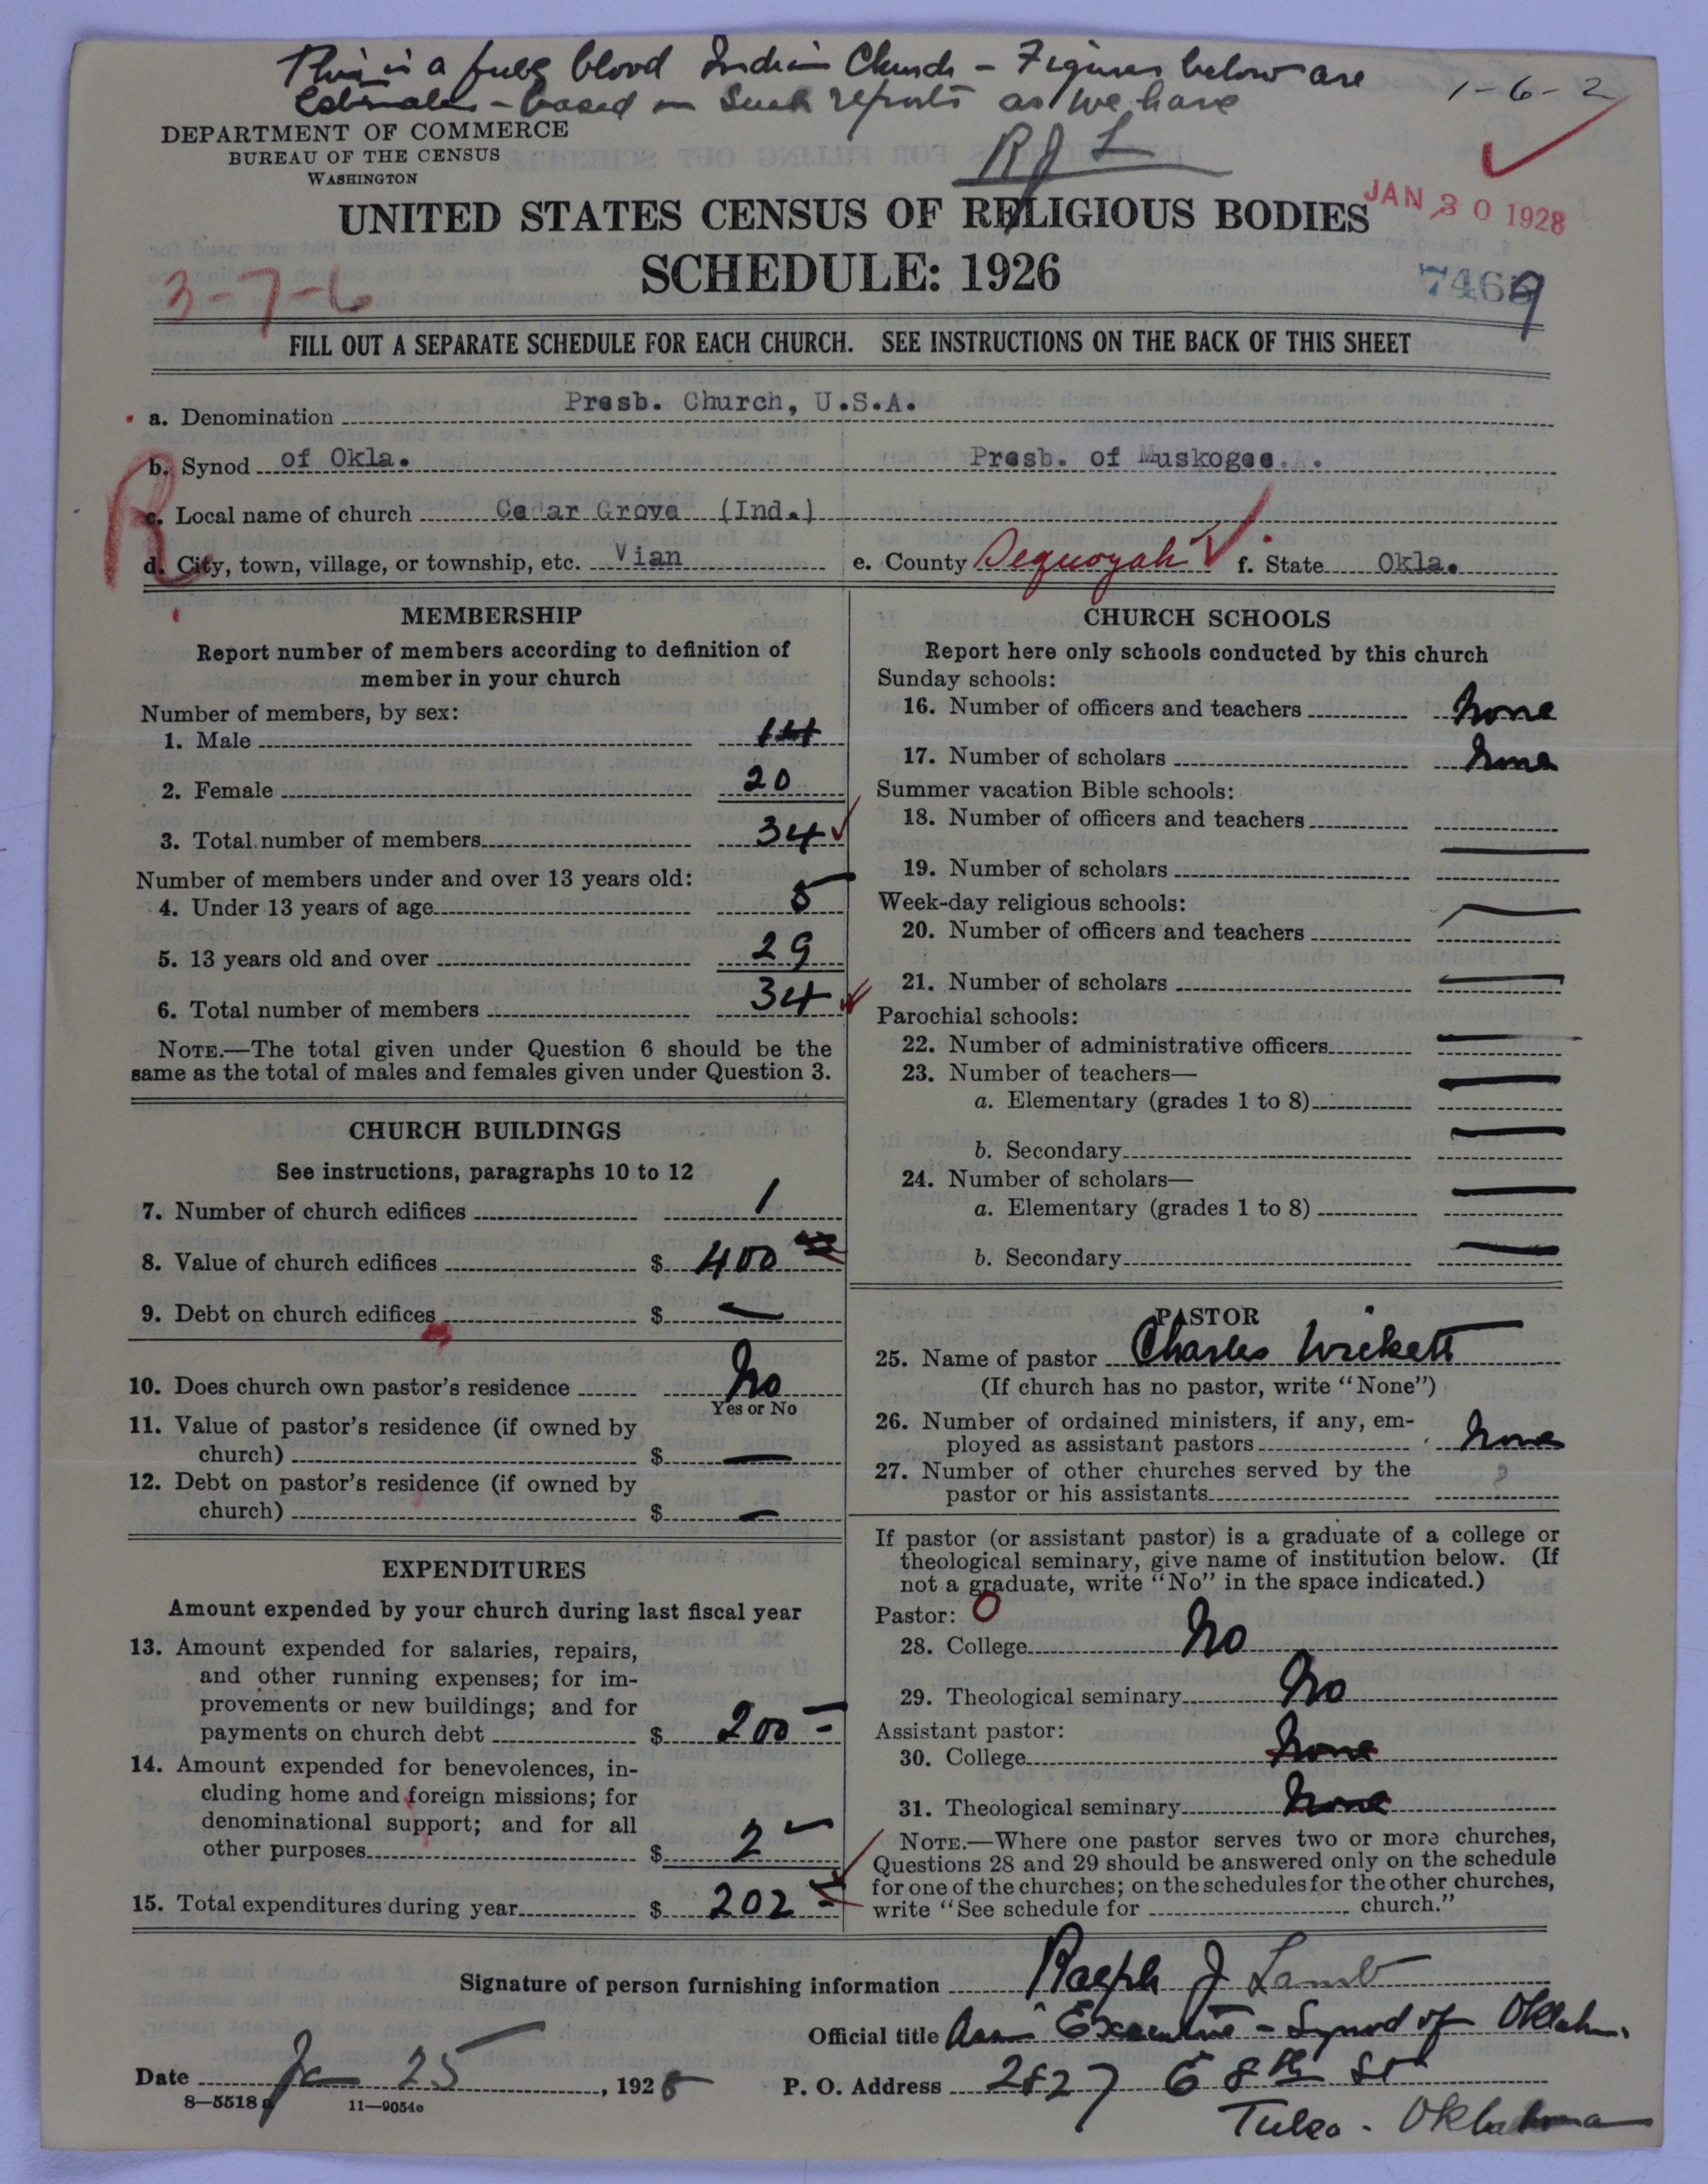 This is a full blood Indian Church - Figures below are
Estimates - based on such reports as we have
1-6-2
R J L
DEPARTMENT OF COMMERCE
BUREAU OF THE CENSUS
WASHINGTON
UNITED STATES CENSUS OF RELIGIOUS BODIES
JAN 30 1928
SCHEDULE: 1926
3-7-6
7469
FILL OUT A SEPARATE SCHEDULE FOR EACH CHURCH. SEE INSTRUCTIONS ON THE BACK OF THIS SHEET
a. Denomination Presb. Church, U.S.A.
b. Synod of Okla. Presb. of Muskogee.
R
c. Local name of church Cedar Grove (Ind.)
d. City, town, village, or township, etc. Vian e. County Sequoyah f. State Okla.
MEMBERSHIP
Report number of members according to definition of
member in your church
Number of members, by sex:
1. Male 14
2. Female 20
3. Total number of members 34
Number of members under and over 13 years old:
4. Under 13 years of age 5
5. 13 years old and over 29
6. Total number of members 34
NOTE.—The total given under Question 6 should be the
same as the total of males and females given under Question 3.
CHURCH BUILDINGS
See instructions, paragraphs 10 to 12
7. Number of church edifices 1
8. Value of church edifices $ 400
9. Debt on church edifices $ —
10. Does church own pastor's residence No
Yes or No
11. Value of pastor's residence (if owned by
church) $ —
12. Debt on pastor's residence (if owned by
church) $ —
EXPENDITURES
Amount expended by your church during last fiscal year
13. Amount expended for salaries, repairs,
and other running expenses; for im-
provements or new buildings; and for
payments on church debt $ 200 -
14. Amount expended for benevolences, in-
cluding home and foreign missions; for
denominational support; and for all
other purposes $ 2 -
15. Total expenditures during year $ 202 -
CHURCH SCHOOLS
Report here only schools conducted by this church
Sunday schools:
16. Number of officers and teachers None
17. Number of scholars None
Summer vacation Bible schools:
18. Number of officers and teachers
19. Number of scholars —
Week-day religious schools:
20. Number of officers and teachers —
21. Number of scholars —
Parochial schools:
22. Number of administrative officers —
23. Number of teachers—
a. Elementary (grades 1 to 8) —
b. Secondary —
24. Number of scholars—
a. Elementary (grades 1 to 8) —
b. Secondary —
PASTOR
25. Name of pastor Charles Wickett
(If church has no pastor, write "None")
26. Number of ordained ministers, if any, em-
ployed as assistant pastors None
27. Number of other churches served by the
pastor or his assistants ?
If pastor (or assistant pastor) is a graduate of a college or
theological seminary, give name of institution below. (If
not a graduate, write "No" in the space indicated.)
Pastor: O
28. College No
29. Theological seminary No
Assistant pastor:
30. College None
31. Theological seminary None
NOTE.—Where one pastor serves two or more churches,
Questions 28 and 29 should be answered only on the schedule
for one of the churches; on the schedules for the other churches,
write "See schedule for church."
Signature of person furnishing information Ralph J Lamb
Official title Assn Executive - Synod of Oklahm.
Date Ja 25, 1928 P. O. Address 2827 E 8th St
8—5518 a 11—9054e
Tulsa - Oklahoma